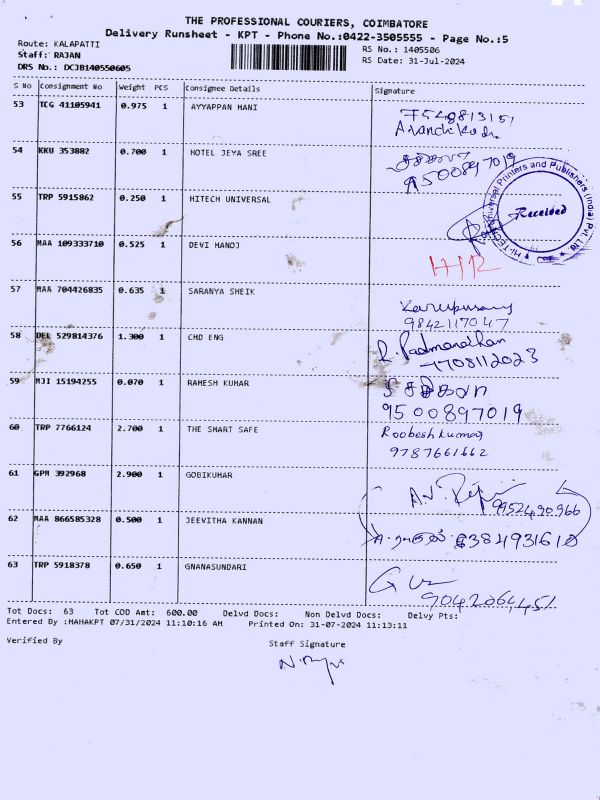 THE PROFESSIONAL COURIERS, COIMBATORE
Delivery Runsheet - KPT - Phone No.:0422-3505555 - Page No.:5
Route: KALAPATTI
RS No.: 1405506
Staff: RAJAN
RS Date: 31-Jul-2024
DRS No.: DCJB140550605
S No Consignment No Weight PCS Consignee Details Signature
53 TCG 41105941 0.975 1 AYYAPPAN HANI
54 KKU 353882 0.700 1 HOTEL JEYA SREE
9500897019
55 TRP 5915862 0.250 1 HITECH UNIVERSAL
Received
56 MAA 109333710 0.525 1 DEVI HANOJ
57 MAA 704426835 0.635 1 SARANYA SHEIK
9842117047
58 DEL 529814376 1.300 1 CMD ENG
R. Padmanathan
7708112023
59 MJI 15194255 0.070 1 RAMESH KUMAR
9500897019
60 TRP 7766124 2.700 1 THE SMART SAFE
Roobesh kumar
9787661662
61 GPM 392968 2.900 1 GOBIKUMAR
9952490966
62 MAA 866585328 0.500 1 JEEVITHA KANNAN
6384931610
63 TRP 5918378 0.650 1 GNANASUNDARI
9042064451
Tot Docs: 63 Tot COD Amt: 600.00 Delvd Docs: Non Delvd Docs: Delvy Pts:
Entered By :MAHAKPT 07/31/2024 11:10:16 AM Printed On: 31-07-2024 11:13:11
Verified By Staff Signature